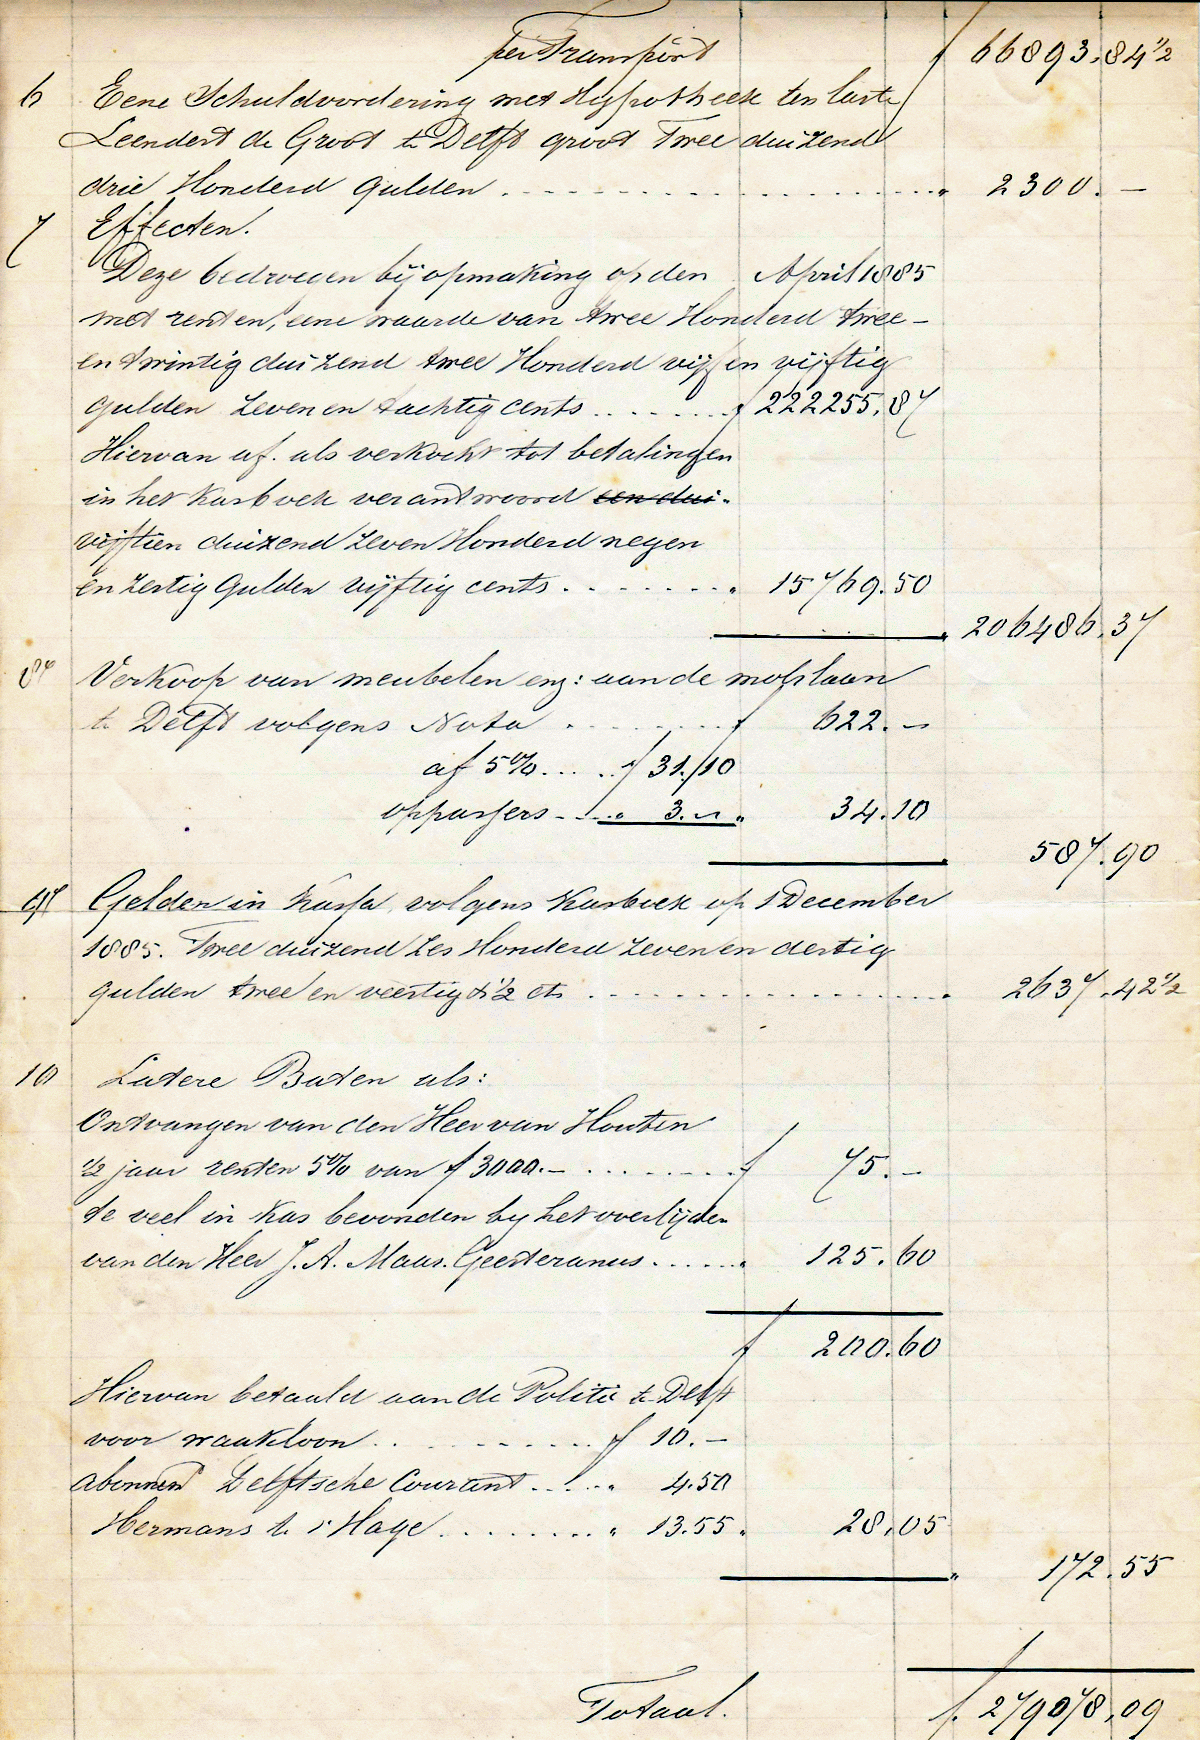 per Transport f 66893.84½
6 Eene Schuldvordering met Hypotheek ten laste
Leendert de Groot te Delft groot Twee duizend
drie Honderd Gulden . . . . . . . . " 2300. —
7 Effecten.
Deze bedroegen bij opmaking op den April 1885
met renten, eene waarde van twee Honderd twee-
en twintig duizend twee Honderd vijf en vijftig
gulden Zeven en tachtig cents . . . . . f 222255.87
Hiervan af. als verkocht tot betalingen
in het Kasboek verantwoord een dui-
vijftien duizend Zeven Honderd negen
en Zestig Gulden vijftig cents . . . . . " 15769.50
" 206486.37
8 Verkoop van meubelen enz: aan de molslaan
te Delft volgens Nota . . . . . f 622. —
af 5% . . . . f 31.10
oppassers - . . . " 3. — " 34.10
" 587.90
9 Gelden in Kassa, volgens Kasboek op 1 December
1885. Twee duizend Zes Honderd Zeven en dertig
gulden twee en veertig & ½ cts . . . . . . . . " 2637.42½
10 Latere Baten als:
Ontvangen van den Heer van Houten
½ jaar renten 5% van f 3000.— . . . . . f 75. —
te veel in Kas bevonden bij het overlijden
van den Heer J. A. Maas. Geesteranus . . . . . " 125.60
f 200.60
Hiervan betaald aan de Politie te Delft
voor waakloon . . . . . . f 10. —
abonnent Delftsche Courant . . . . " 4.50
Hermans te s' Hage . . . . . . " 13.55 " 28.05
" 172.55
Totaal. f. 279078.09